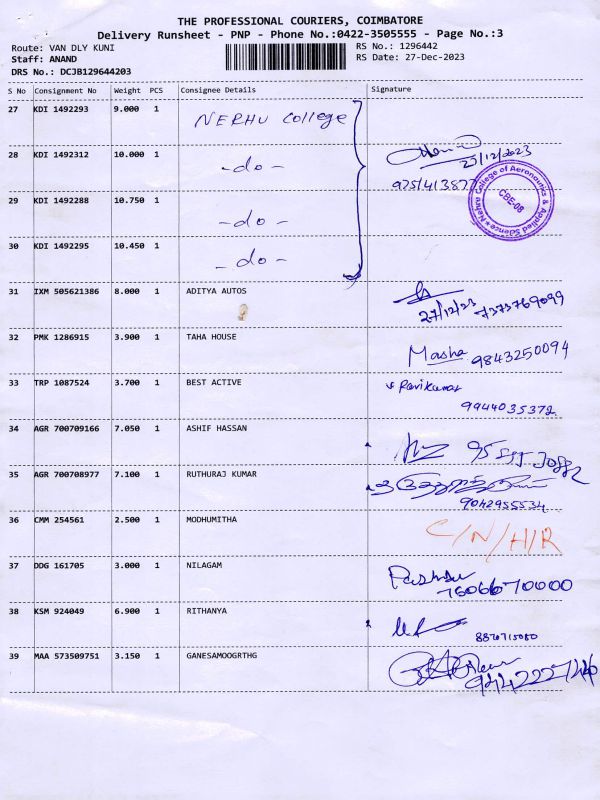 THE PROFESSIONAL COURIERS, COIMBATORE
Delivery Runsheet - PNP - Phone No.:0422-3505555 - Page No.:3
Route: VAN DLY KUNI RS No.: 1296442
Staff: ANAND RS Date: 27-Dec-2023
DRS No.: DCJB129644203
S No Consignment No Weight PCS Consignee Details Signature
27 KDI 1492293 9.000 1 NERHU College
28 KDI 1492312 10.000 1 -do- 27/12/2023
Nehru College of Aeronautics & Applied Science
CBE-08
29 KDI 1492288 10.750 1 -do-
30 KDI 1492295 10.450 1 -do-
31 IXM 505621386 8.000 1 ADITYA AUTOS
27/12/23 7373769099
32 PMK 1286915 3.900 1 TAHA HOUSE Masha 9843250094
33 TRP 1087524 3.700 1 BEST ACTIVE Ravikumar
9944035372
34 AGR 700709166 7.050 1 ASHIF HASSAN
35 AGR 700708977 7.100 1 RUTHURAJ KUMAR
9042955534
36 CMM 254561 2.500 1 MODHUMITHA C/N/H/R
37 DDG 161705 3.000 1 NILAGAM
7606670000
38 KSM 924049 6.900 1 RITHANYA
8870715080
39 MAA 573509751 3.150 1 GANESAMOOGRTHG